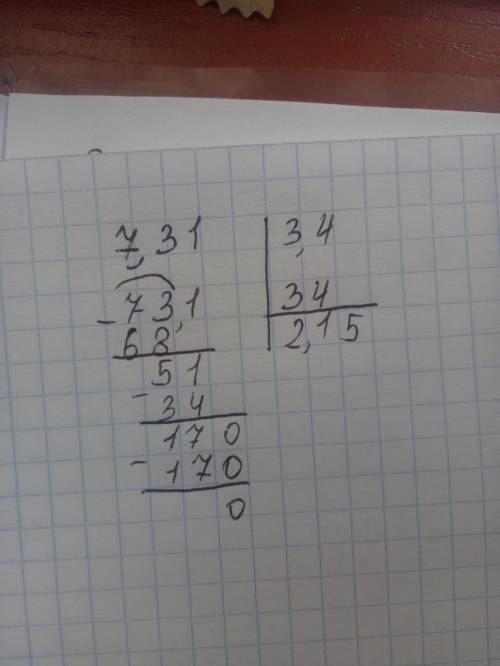 7,31 3,4
- 73,1 34
68 2,15
51
- 34
170
- 170
0